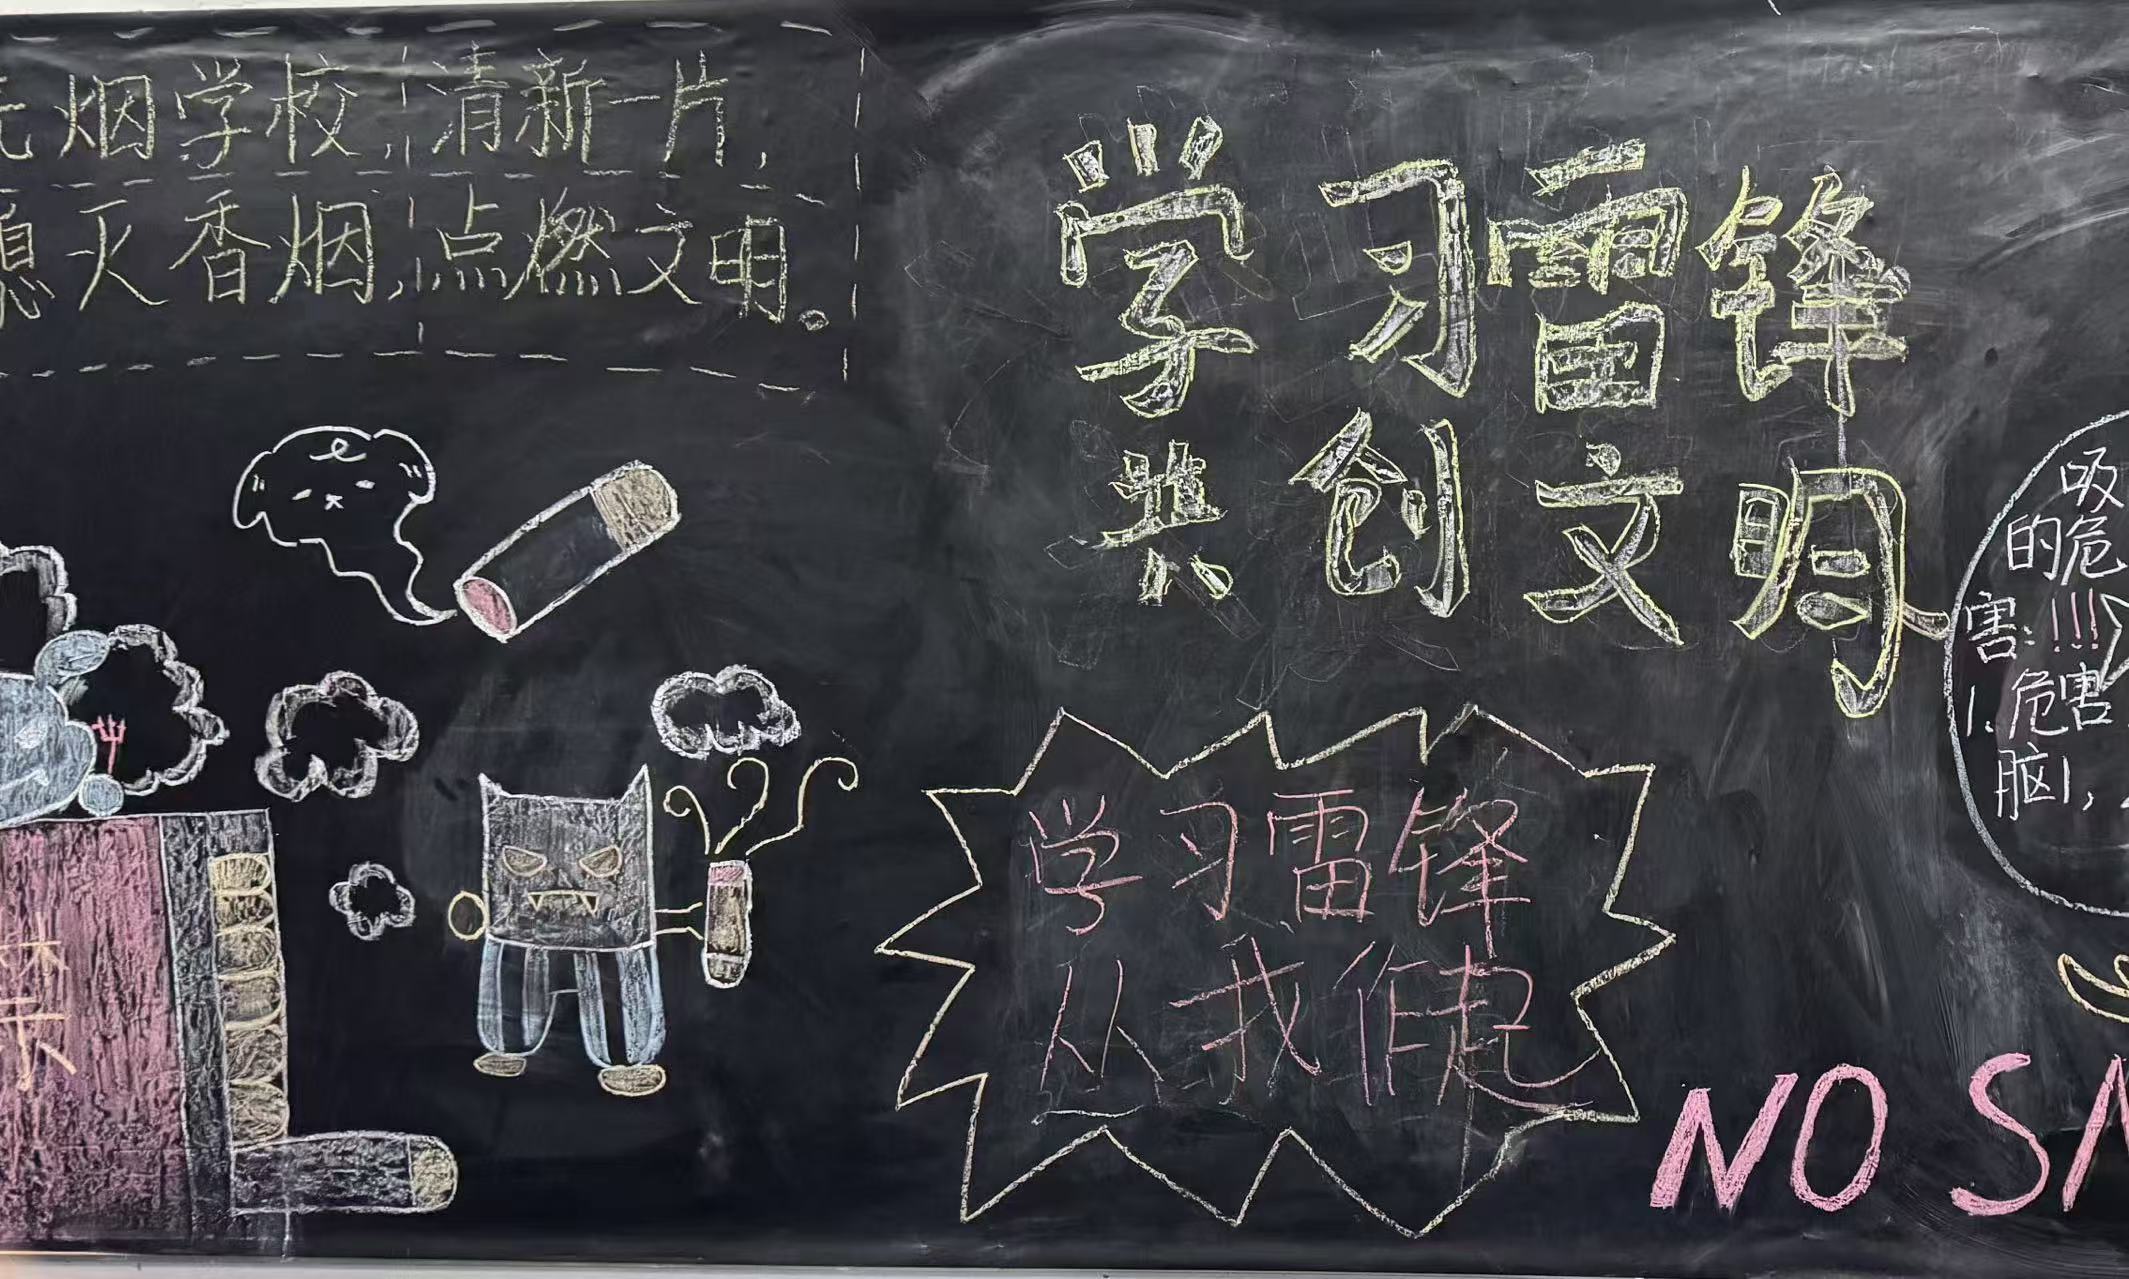 无烟学校,清新一片,
熄灭香烟,点燃文明。
学习雷锋
共创文明
学习雷锋
从我作起
吸
的危
害:!!!
1、危害
脑1,
禁
NO SM